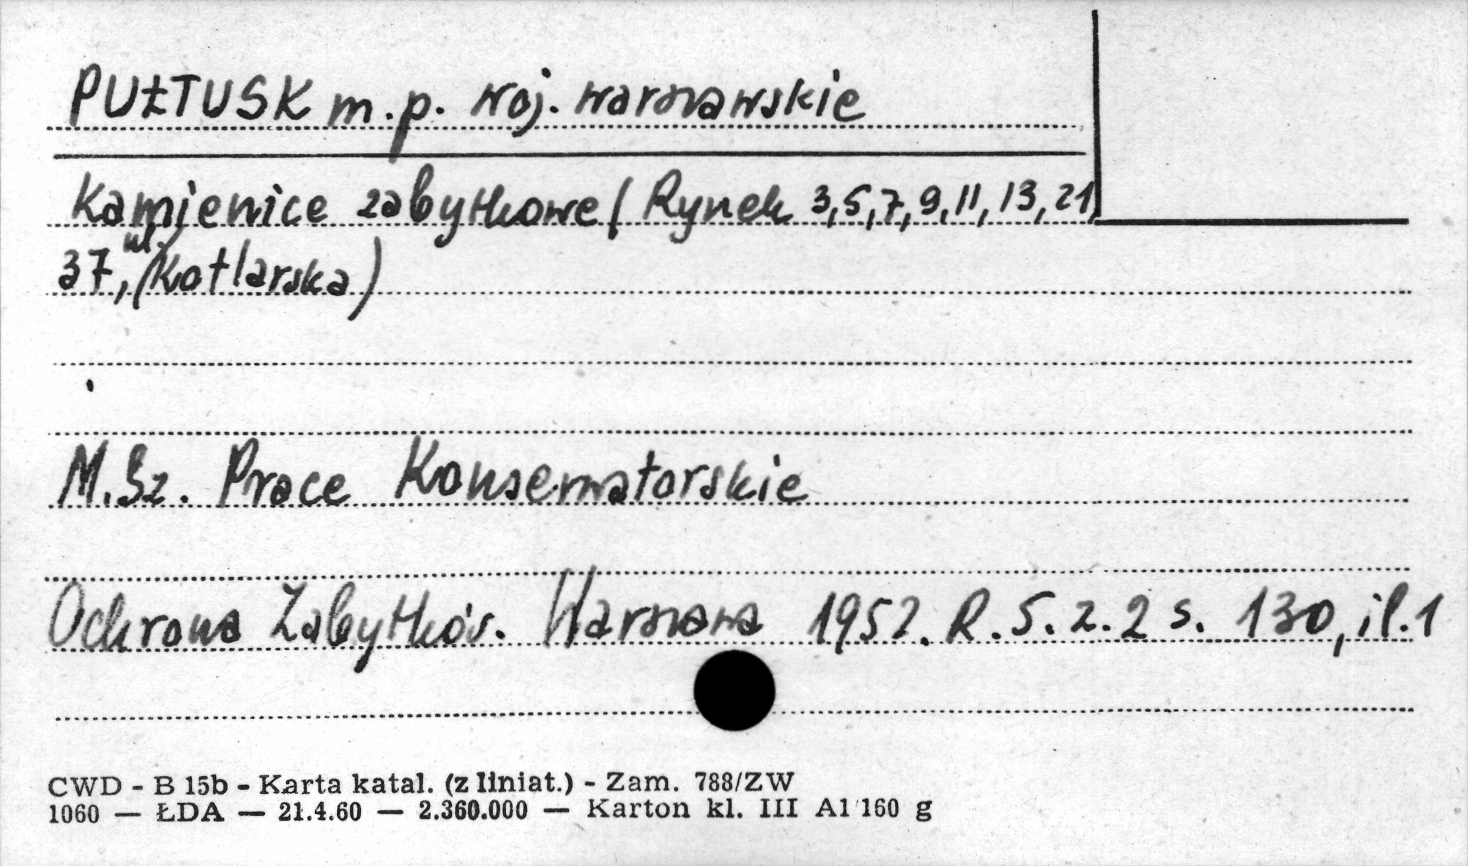 PUŁTUSK m.p. woj. warszawskie
Kamienice zabytkowe (Rynek 3,5,7,9,11,13,21,
37, ul. (Kotlarska)
M.Sz. Prace Konserwatorskie
Ochrona Zabytków. Warszawa 1952. R.5. z.2 s. 130, il.1
CWD - B 15b - Karta katal. (z liniat.) - Zam. 788/ZW
1060 — ŁDA — 21.4.60 — 2.360.000 — Karton kl. III A1 160 g